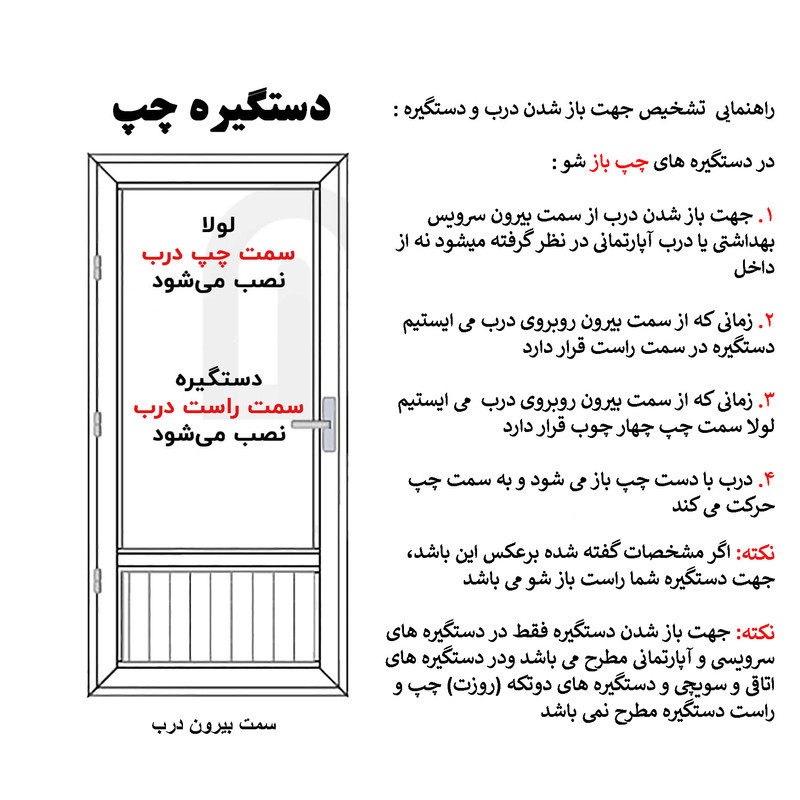 دستگیره چپ
لولا
سمت چپ درب
نصب می‌شود
دستگیره
سمت راست درب
نصب می‌شود
سمت بیرون درب
راهنمایی تشخیص جهت باز شدن درب و دستگیره :
در دستگیره های چپ باز شو :
۱. جهت باز شدن درب از سمت بیرون سرویس
بهداشتی یا درب آپارتمانی در نظر گرفته میشود نه از
داخل
۲. زمانی که از سمت بیرون روبروی درب می ایستیم
دستگیره در سمت راست قرار دارد
۳. زمانی که از سمت بیرون روبروی درب می ایستیم
لولا سمت چپ چهار چوب قرار دارد
۴. درب با دست چپ باز می شود و به سمت چپ
حرکت می کند
نکته: اگر مشخصات گفته شده برعکس این باشد،
جهت دستگیره شما راست باز شو می باشد
نکته: جهت باز شدن دستگیره فقط در دستگیره های
سرویسی و آپارتمانی مطرح می باشد ودر دستگیره های
اتاقی و سویچی و دستگیره های دوتکه (روزت) چپ و
راست دستگیره مطرح نمی باشد